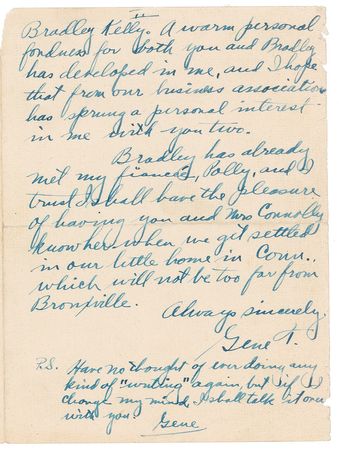 II
Bradley Kelly. A warm personal
fondness for both you and Bradley
has developed in me, and I hope
that from our business association
has sprung a personal interest
in me with you two.
Bradley has already
met my fiancée, Polly, and I
trust I shall have the pleasure
of having you and Mrs Connolly
know her when we get settled
in our little home in Conn.,
which will not be too far from
Bronxville.
Always sincerely,
Gene T.
P.S. Have no thought of ever doing any
kind of "writing" again, but if I
change my mind, I shall talk it over
with you.
Gene